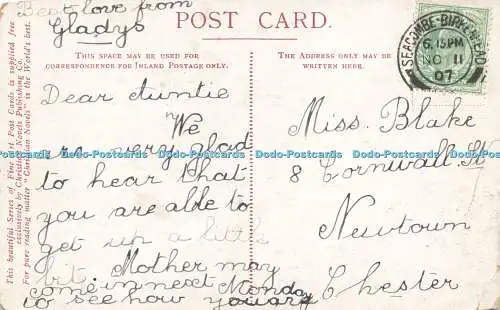 Best love from
Gladys
POST CARD.
THIS SPACE MAY BE USED FOR
CORRESPONDENCE FOR INLAND POSTAGE ONLY.
THE ADDRESS ONLY MAY BE
WRITTEN HERE.
SEACOMBE-BIRKENHEAD
6.15PM
NO 11
07
Dear Auntie
We
are very glad
to hear that
you are able to
get up a little
bit. Mother may
come in next Monday
to see how you are
Miss. Blake
8 Cornwall St
Newtown
Chester
This beautiful Series of Fine Art Post Cards is supplied free
exclusively by Christian Novels Publishing Co.
For pure reading matter "Christian Novels" is the World's best.
Dodo-Postcards Dodo-Postcards Dodo-Postcards Dodo-Postcards Dodo-Postcards Dodo-Postcards